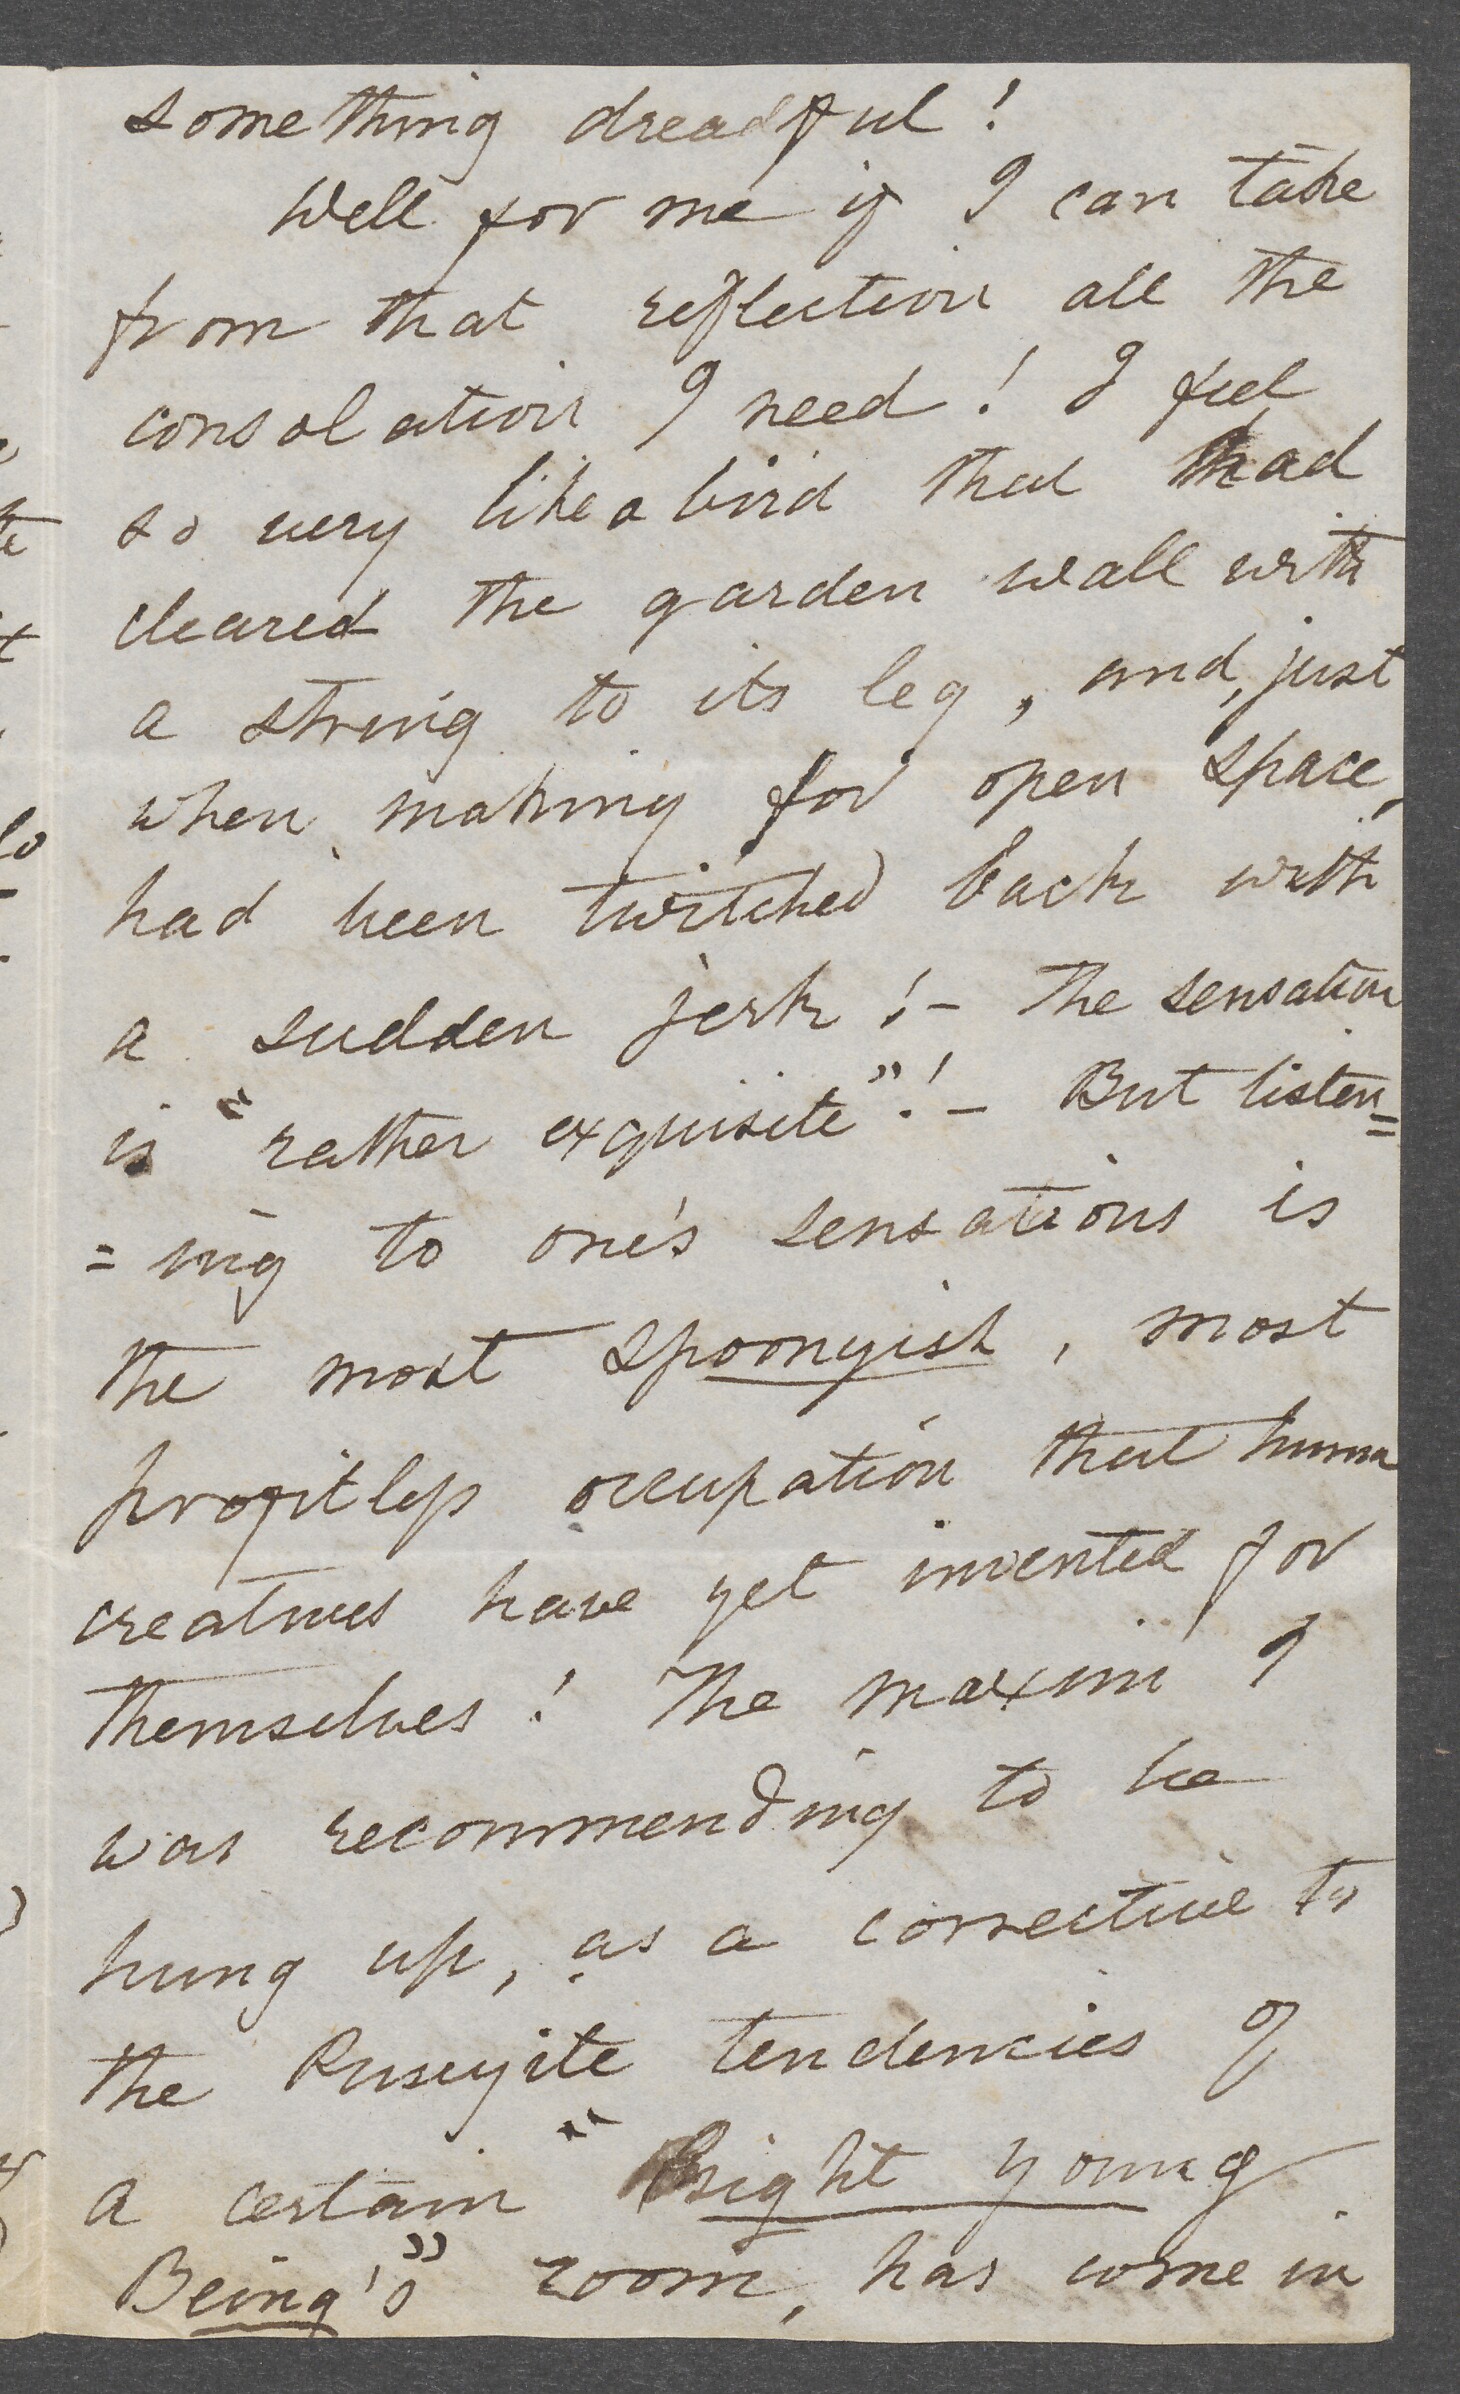 something dreadful!
Well for me if I can take
from that reflection all the
consolation I need! I feel
so very like a bird that had
cleared the garden wall with
a string to its leg, and, just
when making for open space,
had been twitched back with
a sudden jerk!– The sensation
is "rather exquisite"!– But listen=
=ing to one's sensations is
the most spoonyish, most
profitless occupation that human
creatures have yet invented for
themselves! The maxim I
was recommending to be
hung up, as a corrective to
the Puseyite tendencies of
a certain "Bright young
Being's" room, has come in